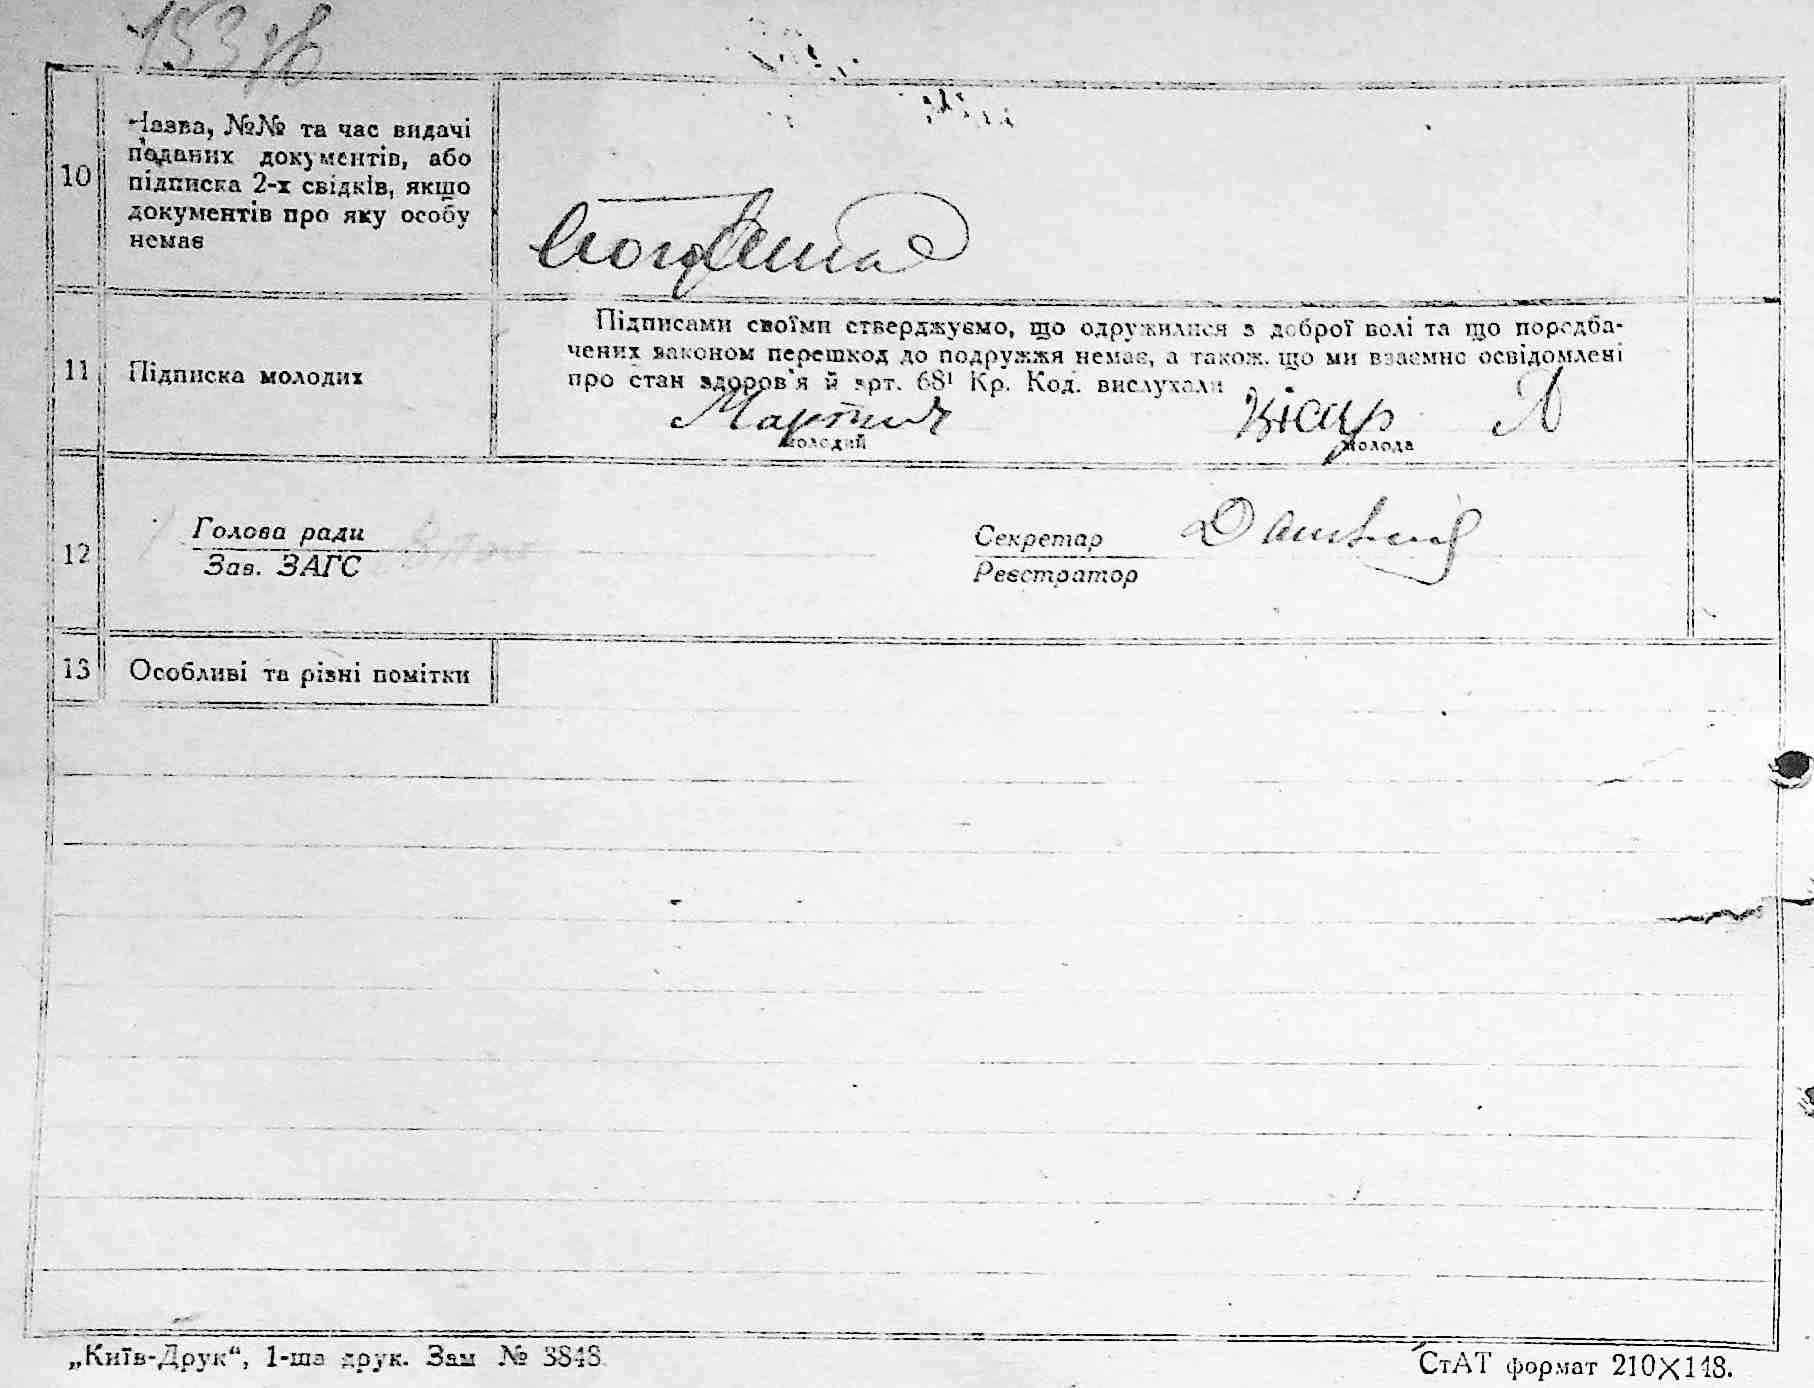 10
Назва, №№ та час видачі
поданих документів, або
підписка 2-х свідків, якщо
документів про яку особу
немає
11
Підписка молодих
Підписами своїми стверджуємо, що одружилися з доброї волі та що передба-
чених законом перешкод до подружжя немає, а також. що ми взаємно освідомлені
про стан здоров'я й арт. 68¹ Кр. Код. вислухали
молодий
молода
12
Голова ради
Зав. ЗАГС
Секретар
Реєстратор
13
Особливі та різні помітки
„Київ-Друк“, 1-ша друк. Зам № 3848
СтАТ формат 210×148.